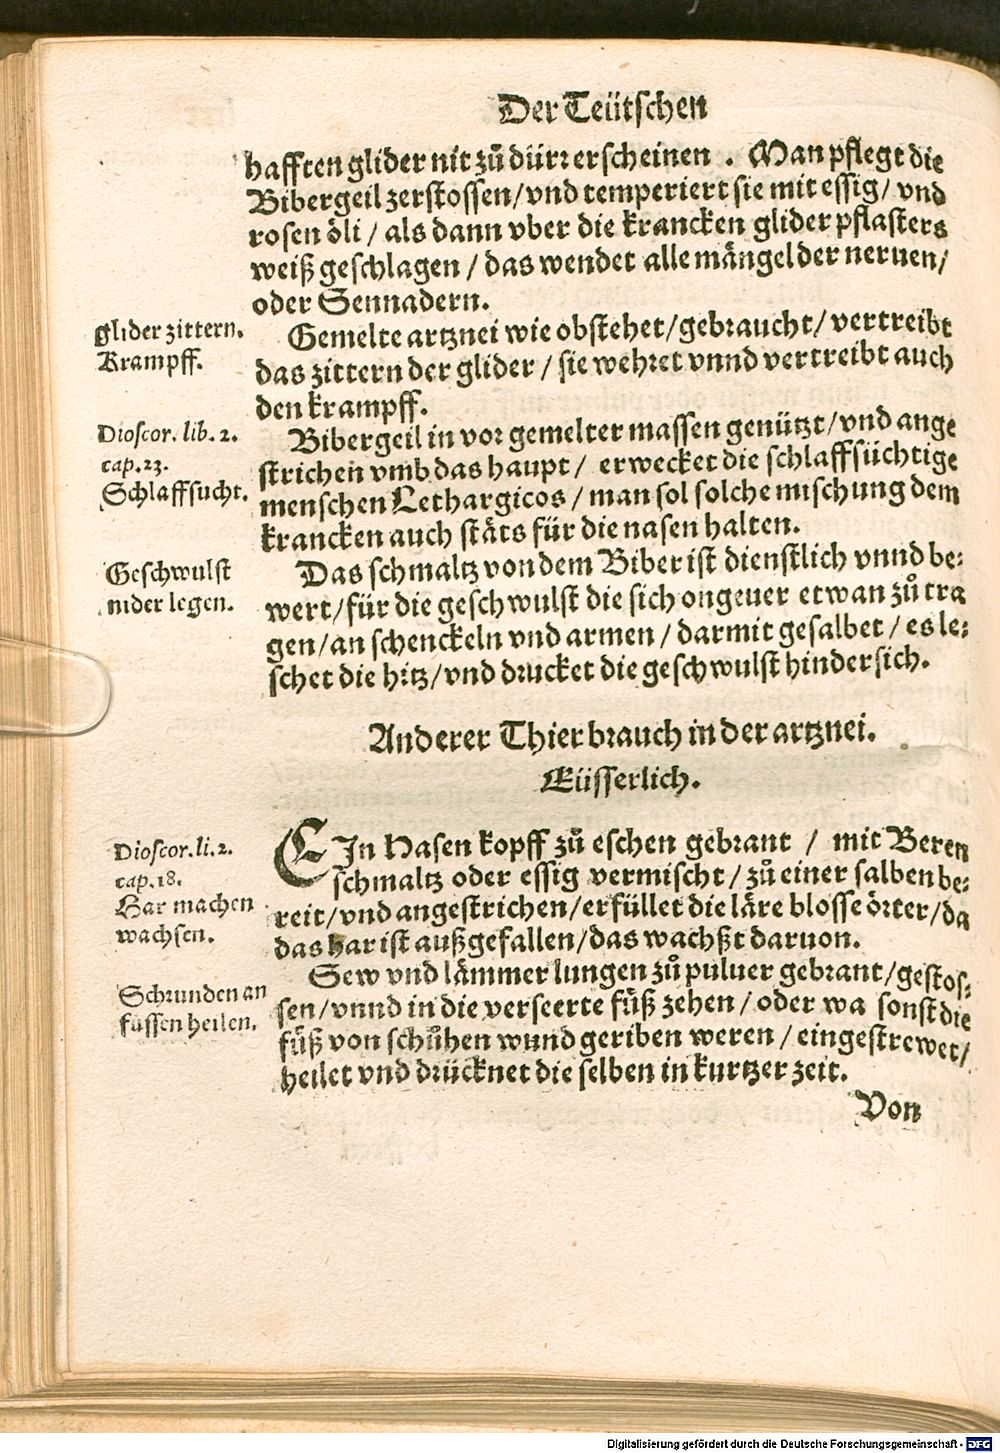 Der Teütschen
hafften glider nit zů dürr erscheinen. Man pflegt die
Bibergeil zerstossen/vnd temperiert sie mit essig/vnd
rosen öli/als dann vber die krancken glider pflasters
weiß geschlagen/das wendet alle mängel der neruen/
oder Sennadern.
glider zittern.
Krampff.
Gemelte artznei wie obstehet/gebraucht/vertreibt
das zittern der glider/sie wehret vnnd vertreibt auch
den krampff.
Dioscor. lib. 2.
cap. 23.
Schlaffsucht.
Bibergeil in vor gemelter massen genützt/vnd ange
strichen vmb das haupt/ erwecket die schlaffsüchtige
menschen Lethargicos/man sol solche mischung dem
krancken auch stäts für die nasen halten.
Geschwulst
nider legen.
Das schmaltz von dem Biber ist dienstlich vnnd be-
wert/für die geschwulst die sich ongeuer etwan zů tra
gen/an schenckeln vnd armen/darmit gesalbet/es le-
schet die hitz/vnd drucket die geschwulst hindersich.
Anderer Thier brauch in der artznei.
Eüsserlich.
Dioscor. li. 2.
cap. 18.
Har machen
wachsen.
EIn Hasen kopff zů eschen gebrant / mit Beren
schmaltz oder essig vermischt/zů einer salben be-
reit/vnd angestrichen/erfüllet die läre blosse örter/da
das har ist außgefallen/das wachßt daruon.
Schrunden an
füssen heilen.
Sew vnd lämmer lungen zů puluer gebrant/gestos-
sen/vnnd in die verseerte fůß zehen/oder wa sonst die
fůß von schůhen wund geriben weren/eingestrewet/
heilet vnd drücknet die selben in kurtzer zeit.
Von
Digitalisierung gefördert durch die Deutsche Forschungsgemeinschaft - DFG